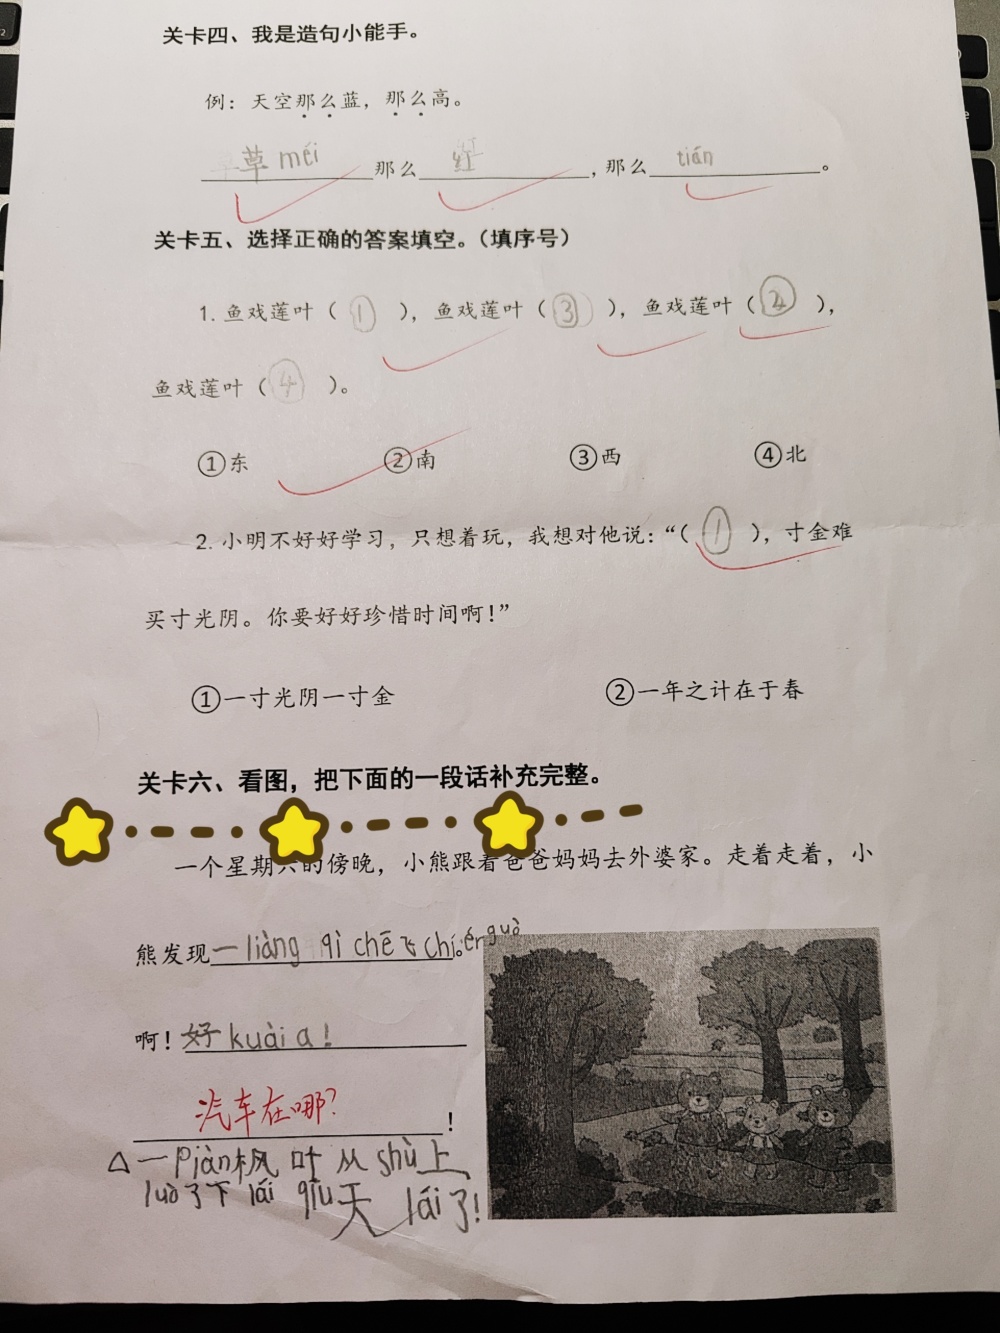 关卡四、我是造句小能手。
例：天空那么蓝，那么高。
草méi那么红，那么tián。
关卡五、选择正确的答案填空。（填序号）
1. 鱼戏莲叶（①），鱼戏莲叶（③），鱼戏莲叶（②），
鱼戏莲叶（④）。
①东 ②南 ③西 ④北
2. 小明不好好学习，只想着玩，我想对他说：“（①），寸金难
买寸光阴。你要好好珍惜时间啊！”
①一寸光阴一寸金 ②一年之计在于春
关卡六、看图，把下面的一段话补充完整。
一个星期六的傍晚，小熊跟着爸爸妈妈去外婆家。走着走着，小
熊发现一liàng qì chē飞chí ér guò。
啊！好kuài a！
汽车在哪？！
△一piàn枫叶从shù上
luò了下lái qiū天lái了！